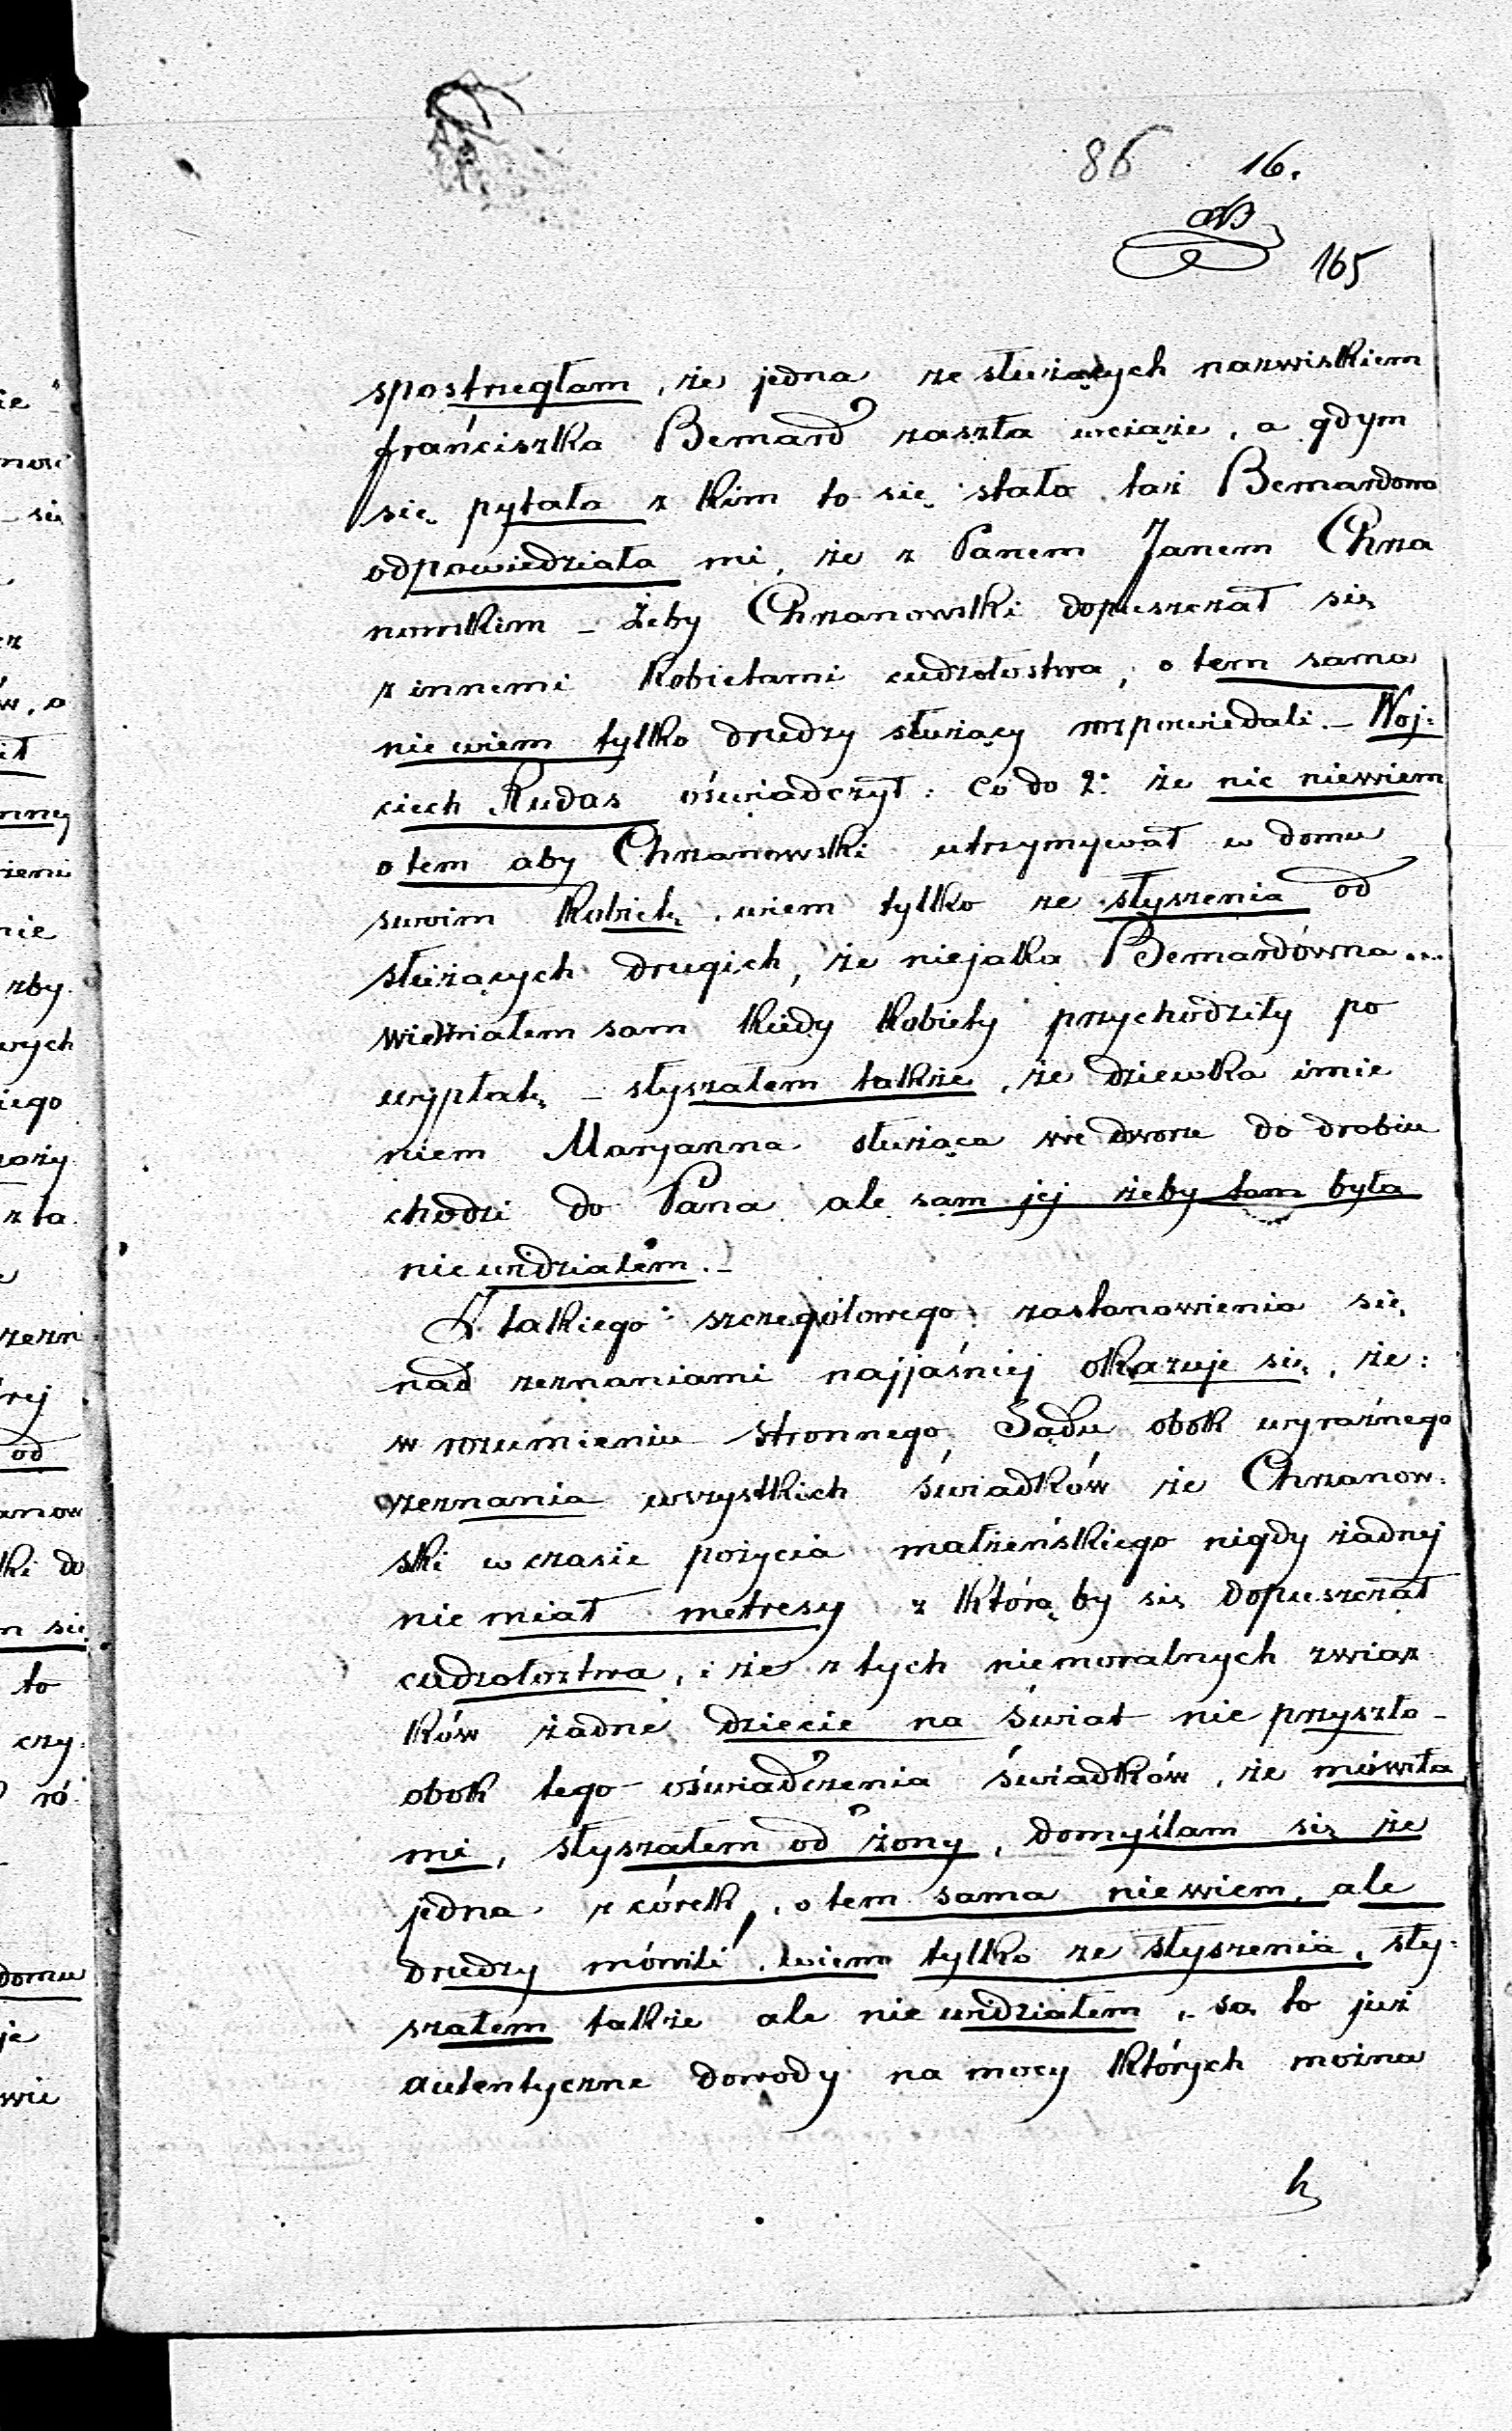 86 16.
165
spostrzegłam, że jedna ze służących nazwiskiem
franciszka Bernard zaszła wciąże, a gdym
się pytała z kim to się stało taż Bernardowa
odpowiedziała mi, że z Panem Janem Chrza
nowskim – Żeby Chrzanowski dopuszczał się
z innemi kobietami cudzołostwa, o tem sama
nie wiem tylko drudzy służący rozpowiedali. – Woj:
ciech Kudas oświadczył: Co do 2: że nic niewiem
o tem aby Chrzanowski utrzymywał w domu
swoim kobietę, wiem tylko ze słyszenia od
służących drugich, że niejaka Bernardówna...
widziałem sam kiedy kobiety przychodziły po
wypłatę – słyszałem także, że dziewka imie
niem Maryanna służąca we dworze do drobiu
chodzi do Pana ale sam jej żeby tam była
nie widziałem. –
Z takiego szczegółowego zastanowienia się
nad zeznaniami najjaśniej okazuje się, że:
w rozumieniu stronnego Sądu obok wyraźnego
zeznania wszystkich świadków że Chrzanow:
ski w czasie pożycia małżeńskiego nigdy żadnej
nie miał metresy z którą by się dopuszczał
cudzołoztwa, i że z tych niemoralnych związ
ków żadne dziecie na świat nie przyszło –
obok tego oświadczenia świadków, że mówiła
mi, słyszałem od żony, domyślam się że
jedna z córek, o tem sama nie wiem, ale
drudzy mówili, wiem tylko ze słyszenia, sły:
szałem także ale nie widziałem, są to już
autentyczne dowody na mocy których można